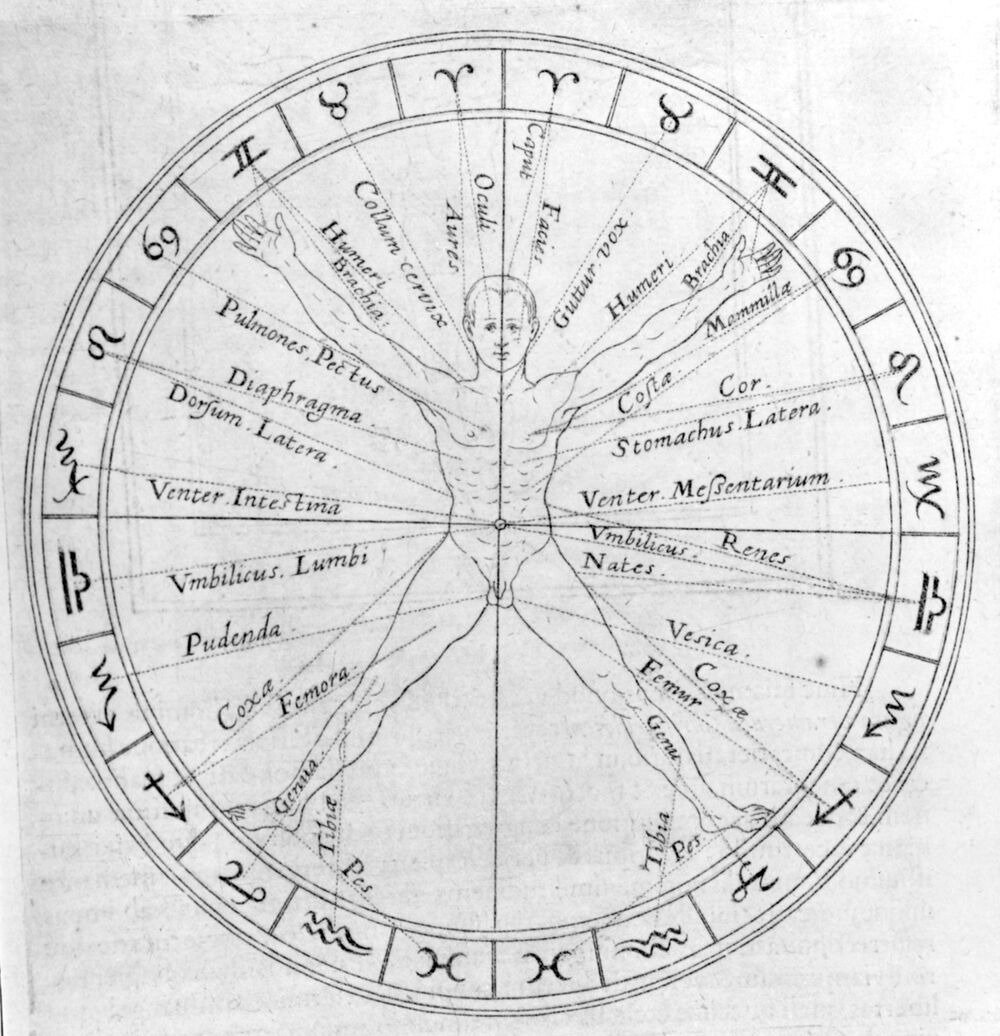 ♈ ♈
♉ ♉
♊ ♊
♋ ♋
♌ ♌
♍ ♍
♎ ♎
♏ ♏
♐ ♐
♑ ♑
♒ ♒
♓ ♓
Caput
Facies
Oculi
Aures
Collum cervix
Humeri
Brachia.
Guttur vox
Humeri
Brachia
Mammillæ
Pulmones. Pectus
Diaphragma.
Dorſum. Latera.
Coſtæ.
Cor.
Stomachus. Latera.
Venter. Inteſtina
Venter. Meßentarium.
Vmbilicus. Lumbi
Vmbilicus.
Renes
Nates.
Pudenda
Vesica.
Coxæ
Femora.
Coxæ
Femur
Genua
Tibiæ
Pes
Genu
Tibia
Pes